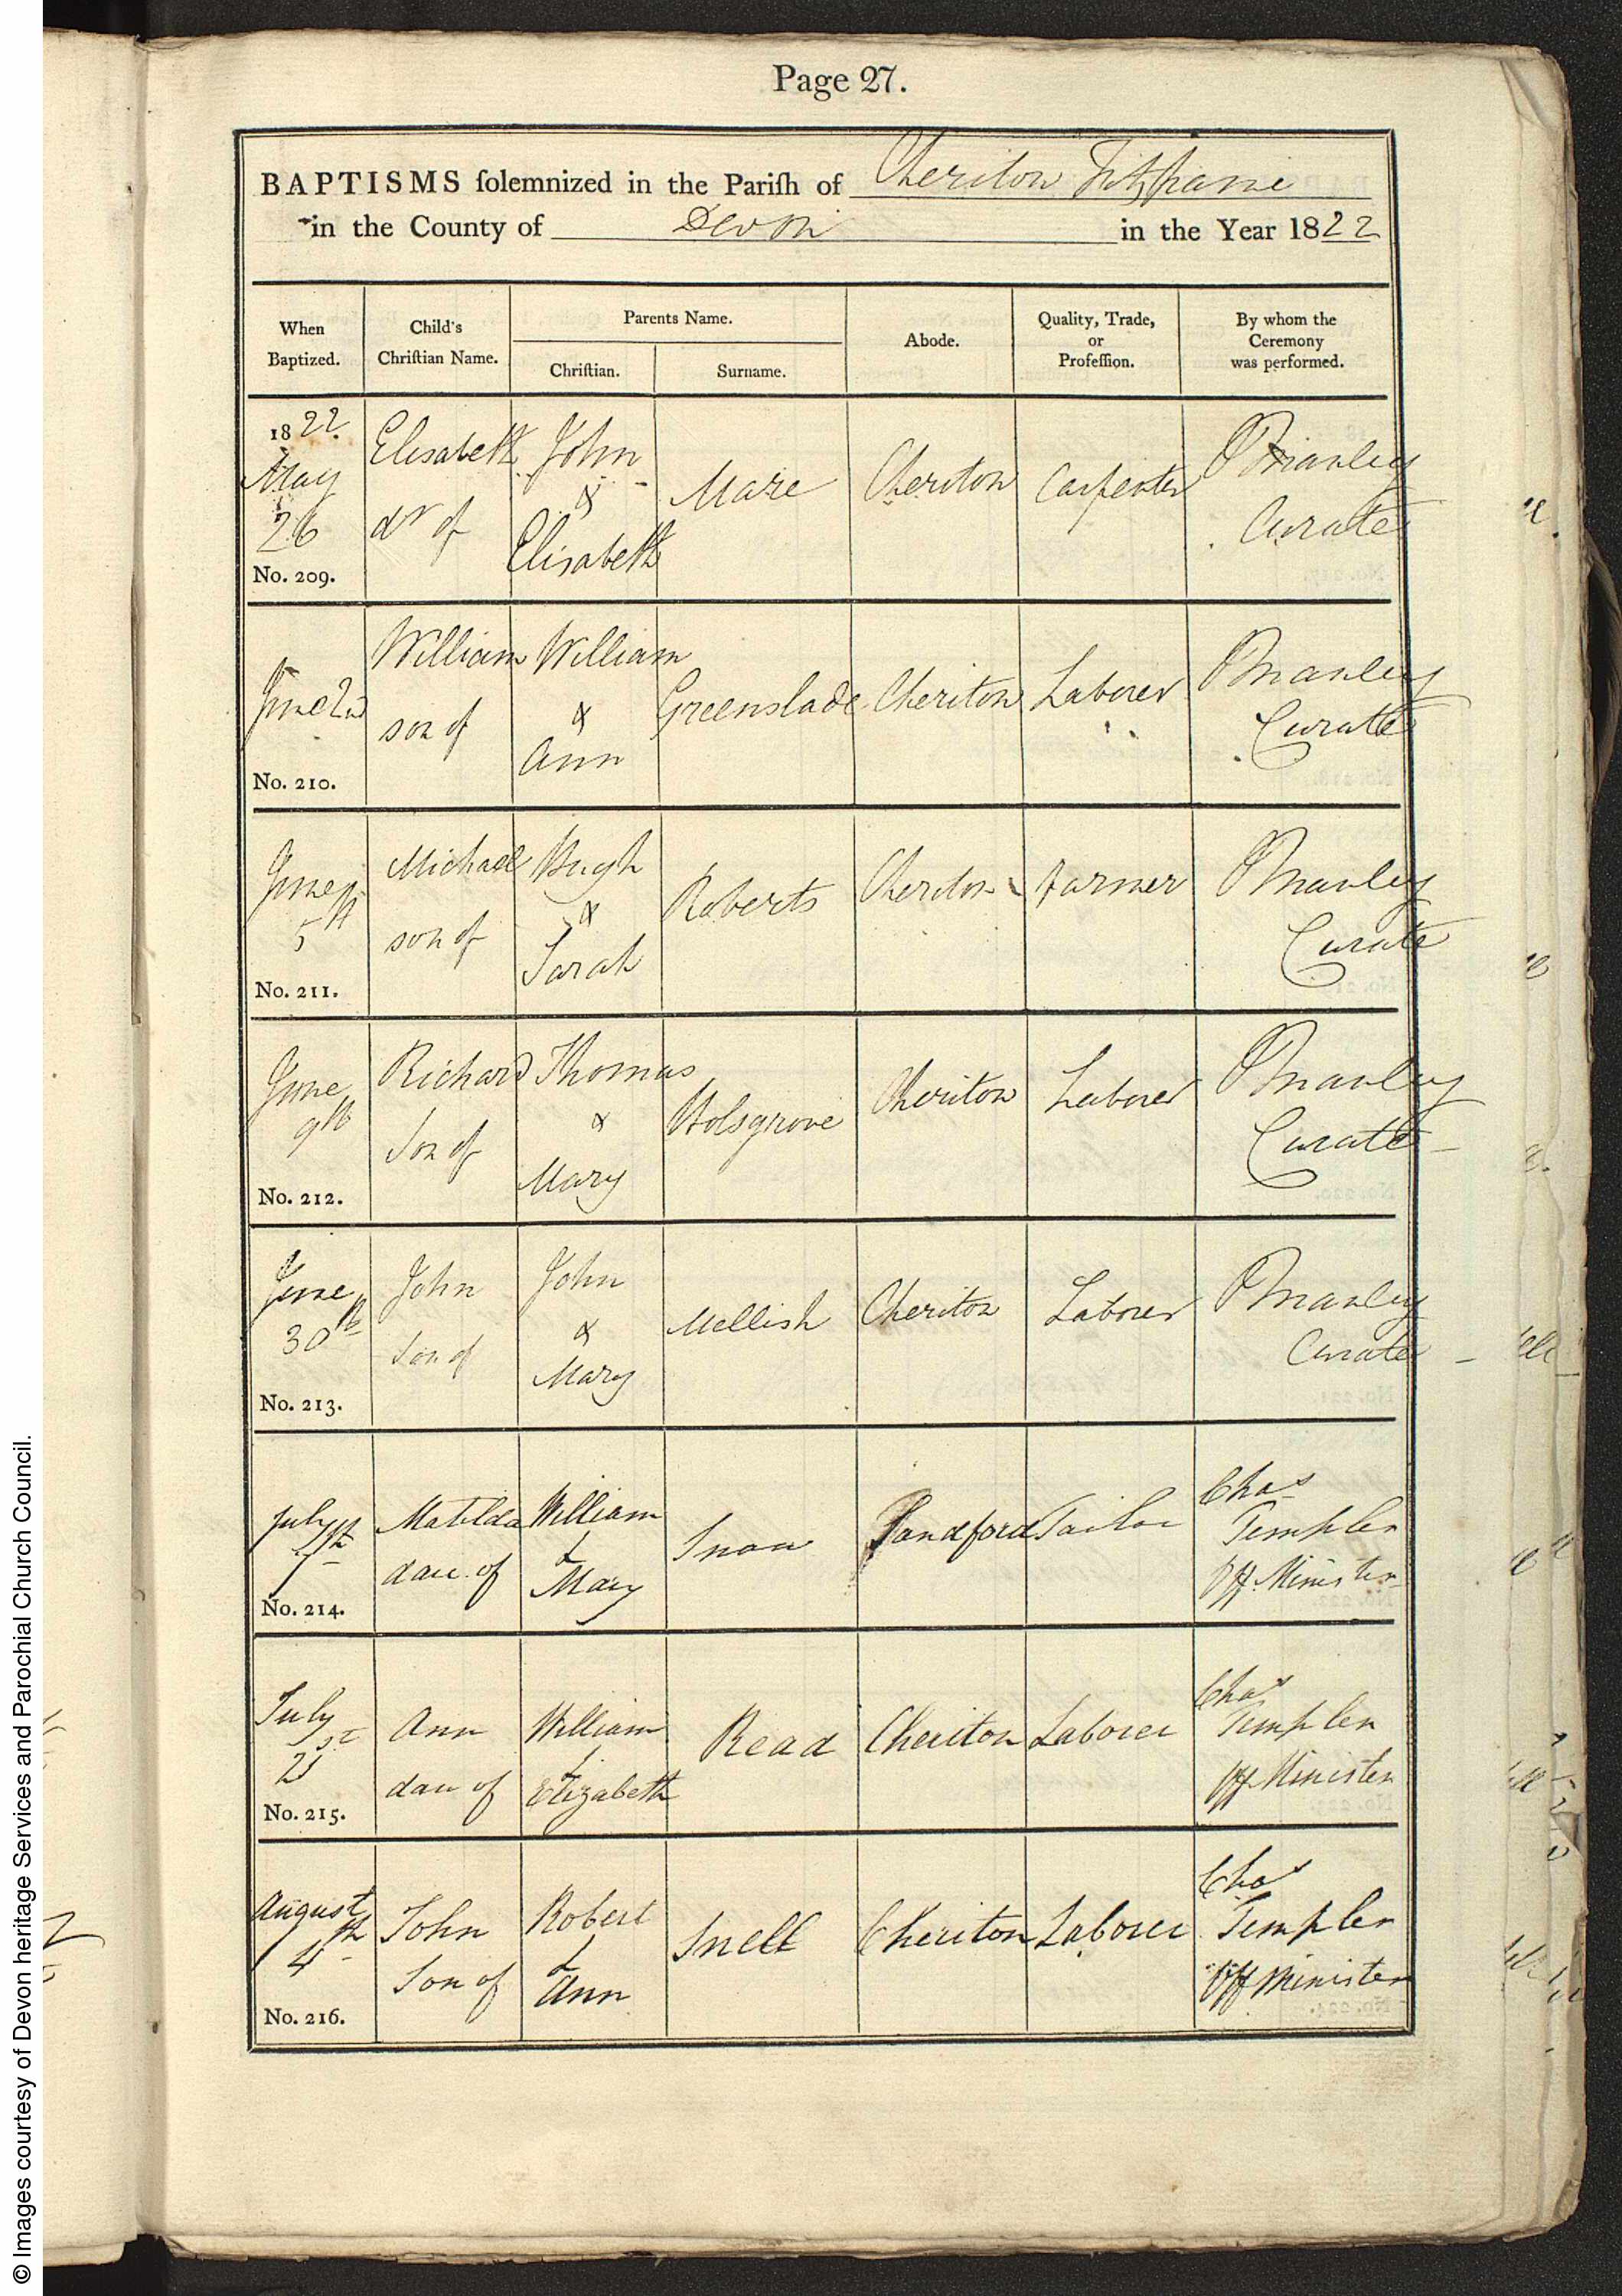 Page 27.
BAPTISMS ſolemnized in the Pariſh of Cheriton Fitzpaine
in the County of Devon in the Year 1822
When Baptized.
Child's Chriſtian Name.
Parents Name.
Chriſtian.
Surname.
Abode.
Quality, Trade, or Profeſſion.
By whom the Ceremony was performed.
1822 May 26 No. 209.
Elisabeth dr of
John & Elisabeth
Mare
Cheriton
Carpenter
Manley Curate
June 2nd No. 210.
William son of
William & Ann
Greenslade
Cheriton
Laborer
Manley Curate
June 5th No. 211.
Michael son of
Hugh & Sarah
Roberts
Cheriton
Farmer
Manley Curate
June 9th No. 212.
Richard Son of
Thomas & Mary
Holsgrove
Cheriton
Laborer
Manley Curate
June 30th No. 213.
John Son of
John & Mary
Mellish
Cheriton
Laborer
Manley Curate
July 7th No. 214.
Matilda dau. of
William & Mary
Snow
Sandford
Tailor
Chas Templer Off. Minister
July 21st No. 215.
Ann dau of
William & Elizabeth
Read
Cheriton
Laborer
Chas Templer Off Minister
August 4th No. 216.
John Son of
Robert & Ann
Snell
Cheriton
Laborer
Chas Templer Off Minister
© Images courtesy of Devon heritage Services and Parochial Church Council.